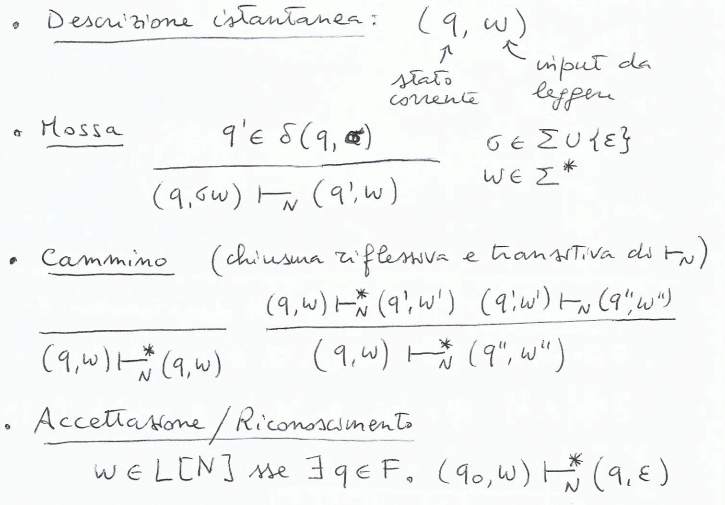 • Descrizione istantanea: (q, w)
stato corrente
input da leggere
• Mossa q' ∈ δ(q, σ) σ ∈ Σ ∪ {ε}
(q, σw) ⊢N (q', w) w ∈ Σ*
• Cammino (chiusura riflessiva e transitiva di ⊢N)
(q, w) ⊢*N (q', w') (q', w') ⊢N (q'', w'')
(q, w) ⊢*N (q, w) (q, w) ⊢*N (q'', w'')
• Accettazione / Riconoscimento
w ∈ L[N] sse ∃ q ∈ F. (q₀, w) ⊢*N (q, ε)